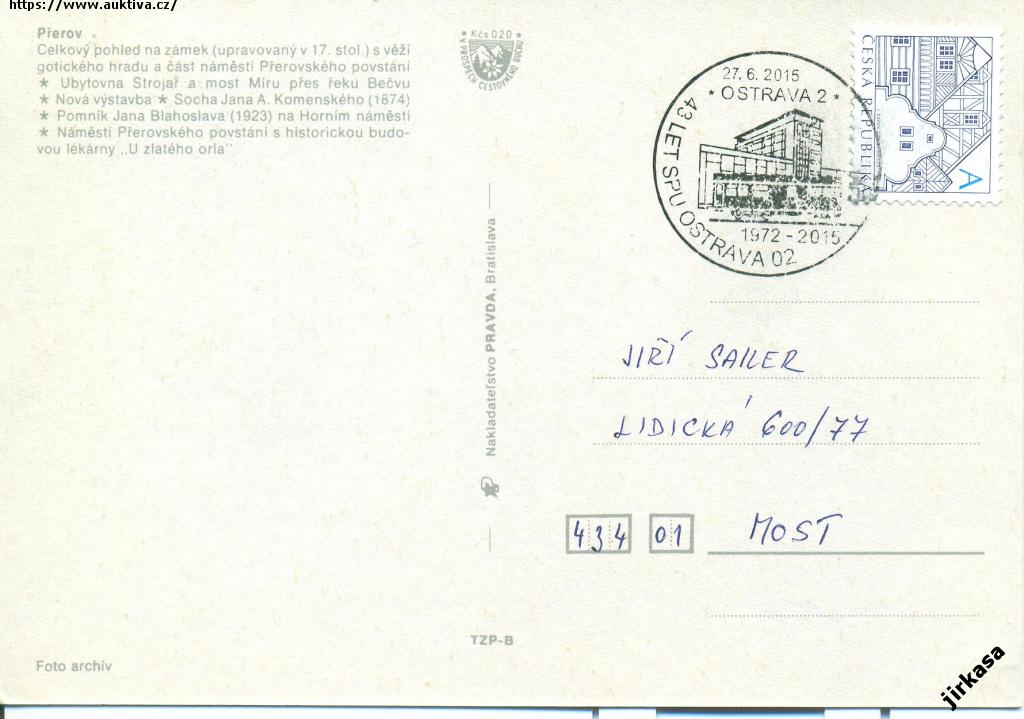 https://www.auktiva.cz/
Přerov
Celkový pohled na zámek (upravovaný v 17. stol.) s věží
gotického hradu a část náměstí Přerovského povstání
★ Ubytovna Strojař a most Míru přes řeku Bečvu
★ Nová výstavba ★ Socha Jana A. Komenského (1874)
★ Pomník Jana Blahoslava (1923) na Horním náměstí
★ Náměstí Přerovského povstání s historickou budo-
vou lékárny „U zlatého orla“
Kčs 0.20
V PROSPĚCH CESTOVNÉHO RUCHU
27. 6. 2015
* OSTRAVA 2 *
43 LET SPU OSTRAVA 02
1972 - 2015
ČESKÁ REPUBLIKA
A
Nakladateľstvo PRAVDA, Bratislava
JIŘÍ SAILER
LIDICKÁ 600/77
434 01 MOST
TZP-B
Foto archív
jirkasa